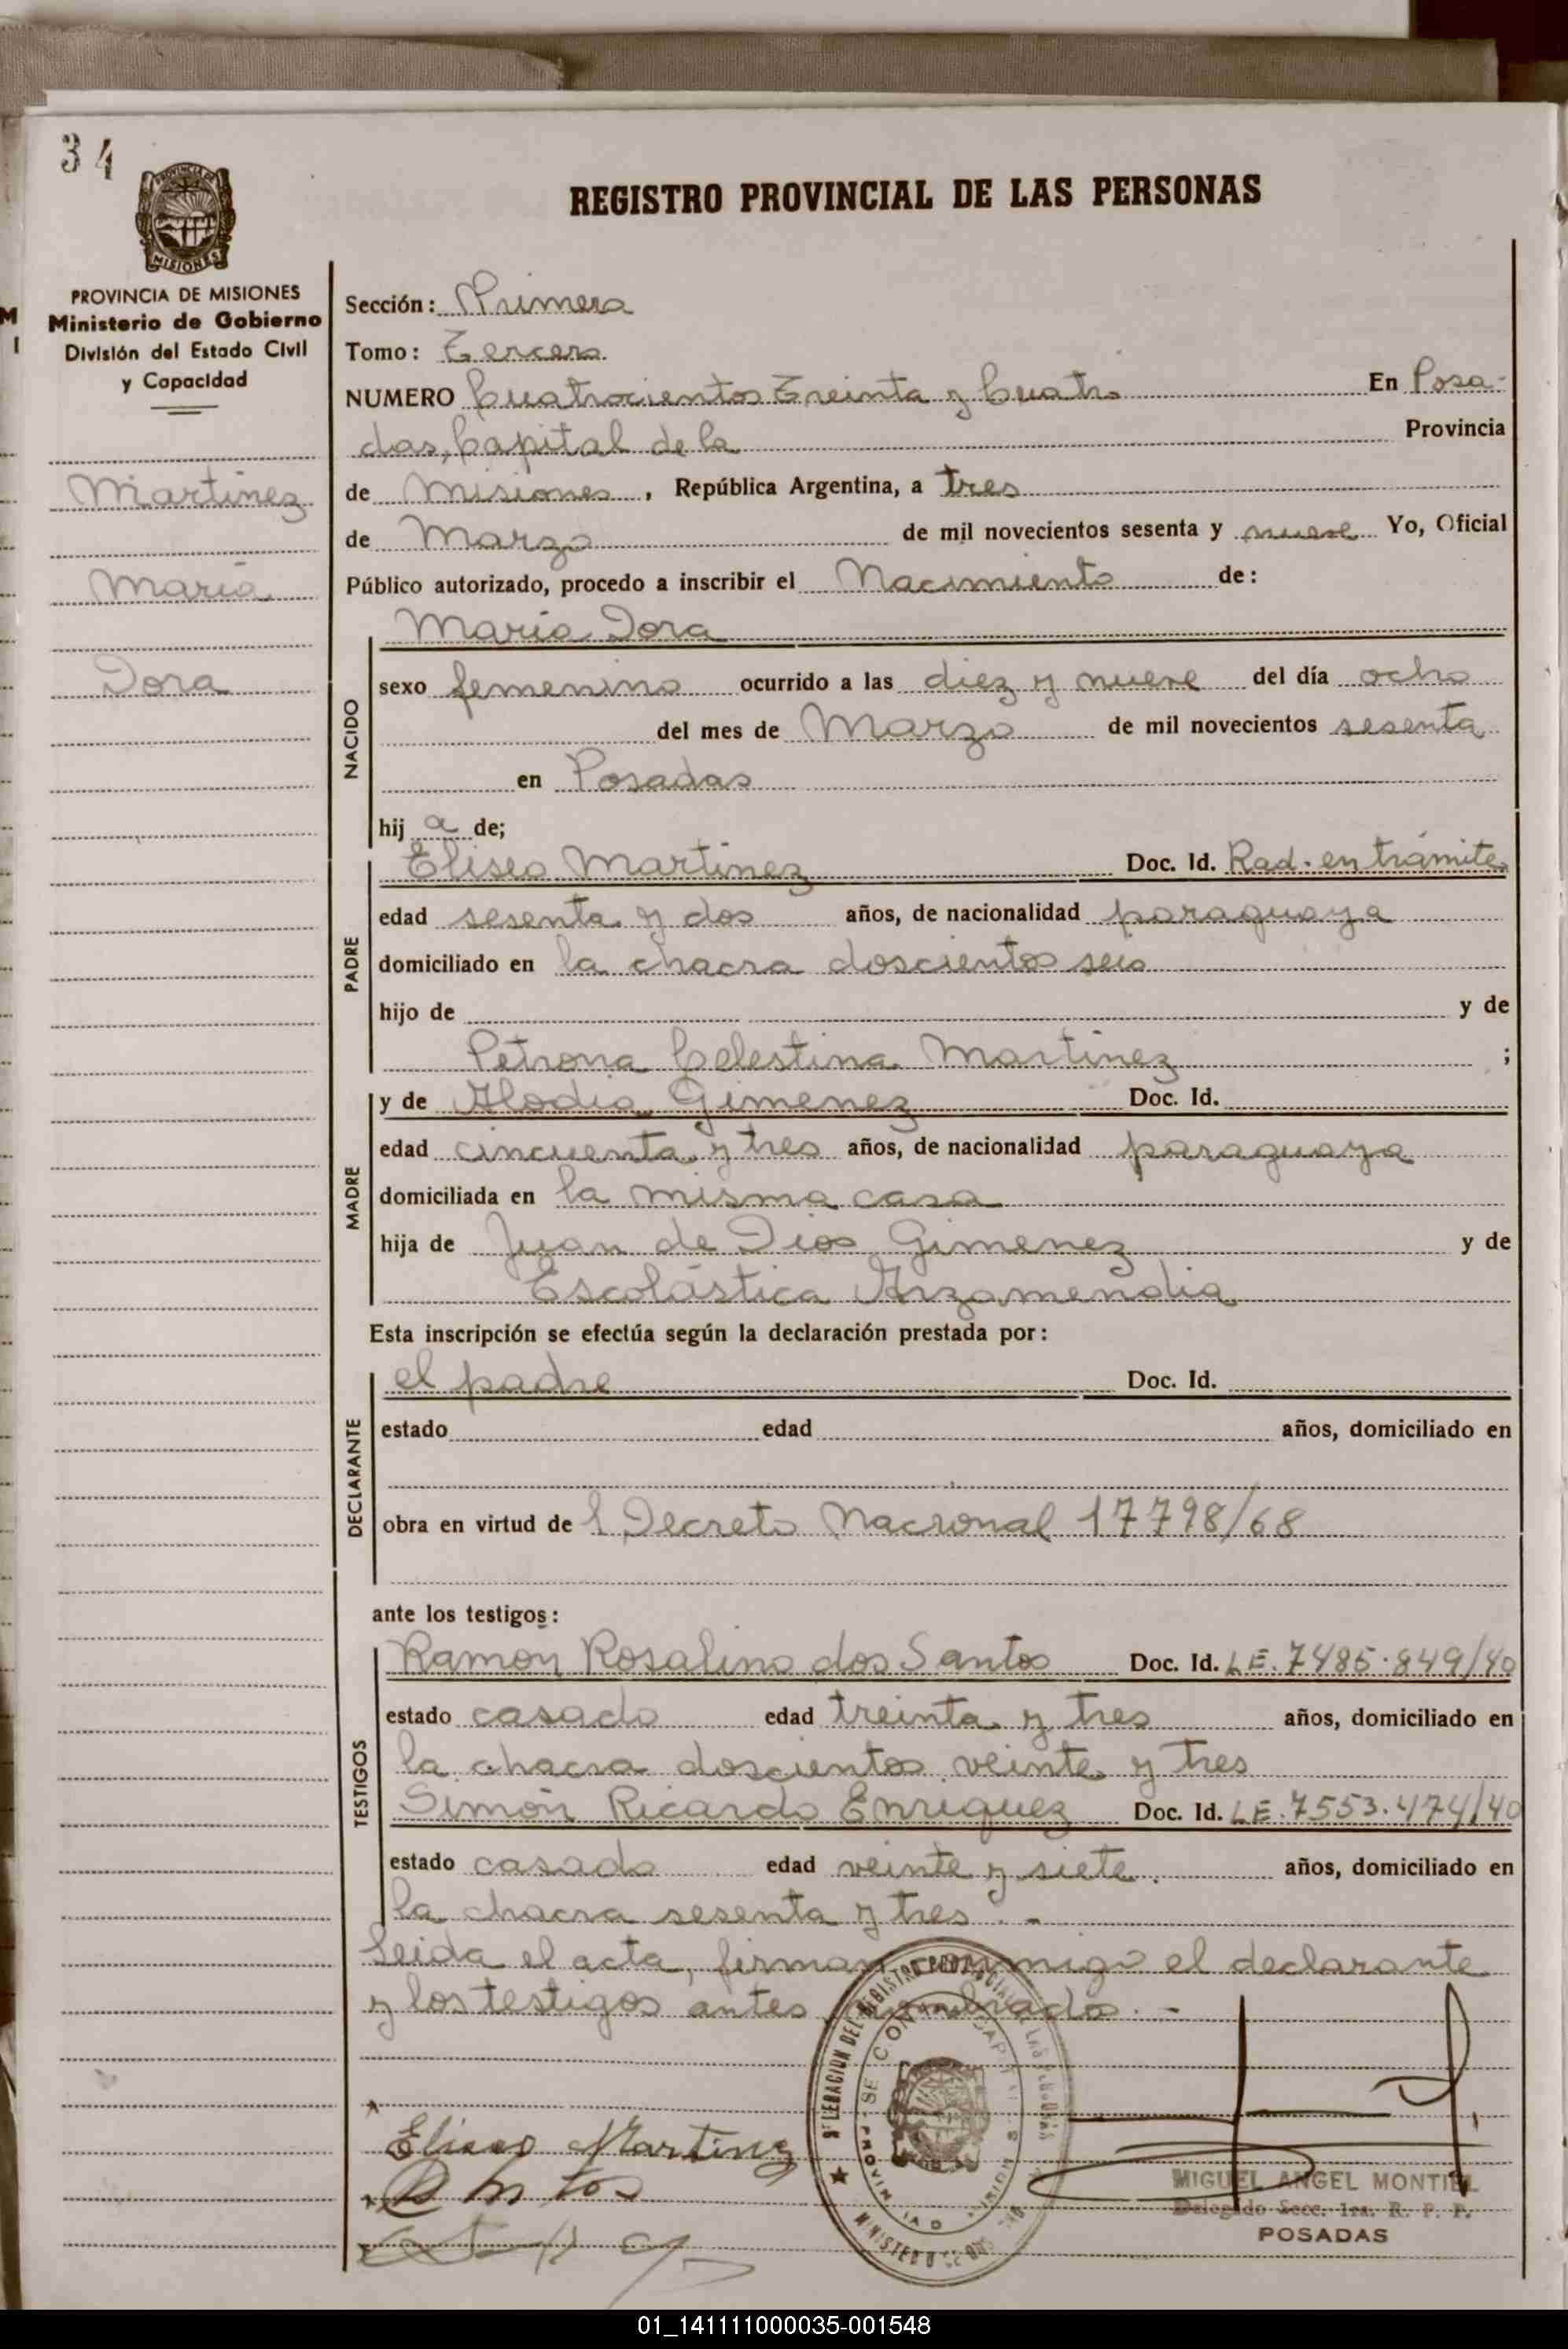 34
PROVINCIA DE MISIONES
MISIONES
PROVINCIA DE MISIONES
Ministerio de Gobierno
División del Estado Civil
y Capacidad
Martinez
Maria
Dora
REGISTRO PROVINCIAL DE LAS PERSONAS
Sección: Primera
Tomo: Tercero
NUMERO Cuatrocientos Treinta y Cuatro En Posa-
das, Capital de la Provincia
de Misiones, República Argentina, a tres
de Marzo de mil novecientos sesenta y nueve Yo, Oficial
Público autorizado, procedo a inscribir el Nacimiento de:
NACIDO
Maria Dora
sexo femenino ocurrido a las diez y nueve del día ocho
del mes de Marzo de mil novecientos sesenta
en Posadas
hij a de;
PADRE
Eliseo Martinez Doc. Id. Rad. en trámite
edad sesenta y dos años, de nacionalidad paraguaya
domiciliado en la chacra doscientos seis
hijo de y de
Petrona Celestina Martinez ;
MADRE
y de Alodia Gimenez Doc. Id.
edad cincuenta y tres años, de nacionalidad paraguaya
domiciliada en la misma casa
hija de Juan de Dios Gimenez y de
Escolástica Arzamendia
Esta inscripción se efectúa según la declaración prestada por:
DECLARANTE
el padre Doc. Id.
estado edad años, domiciliado en
obra en virtud de l Decreto Nacional 17798/68
ante los testigos:
TESTIGOS
Ramon Rosalino dos Santos Doc. Id. LE. 7485.849/40
estado casado edad treinta y tres años, domiciliado en
la chacra doscientos veinte y tres
Simón Ricardo Enriquez Doc. Id. LE. 7553.474/40
estado casado edad veinte y siete. años, domiciliado en
la chacra sesenta y tres.-
Leida el acta, firman conmigo el declarante
y los testigos antes nombrados.-
Eliseo Martinez
MIGUEL ANGEL MONTIEL
Delegado Secc. 1ra. R. P. P.
POSADAS
01_141111000035-001548